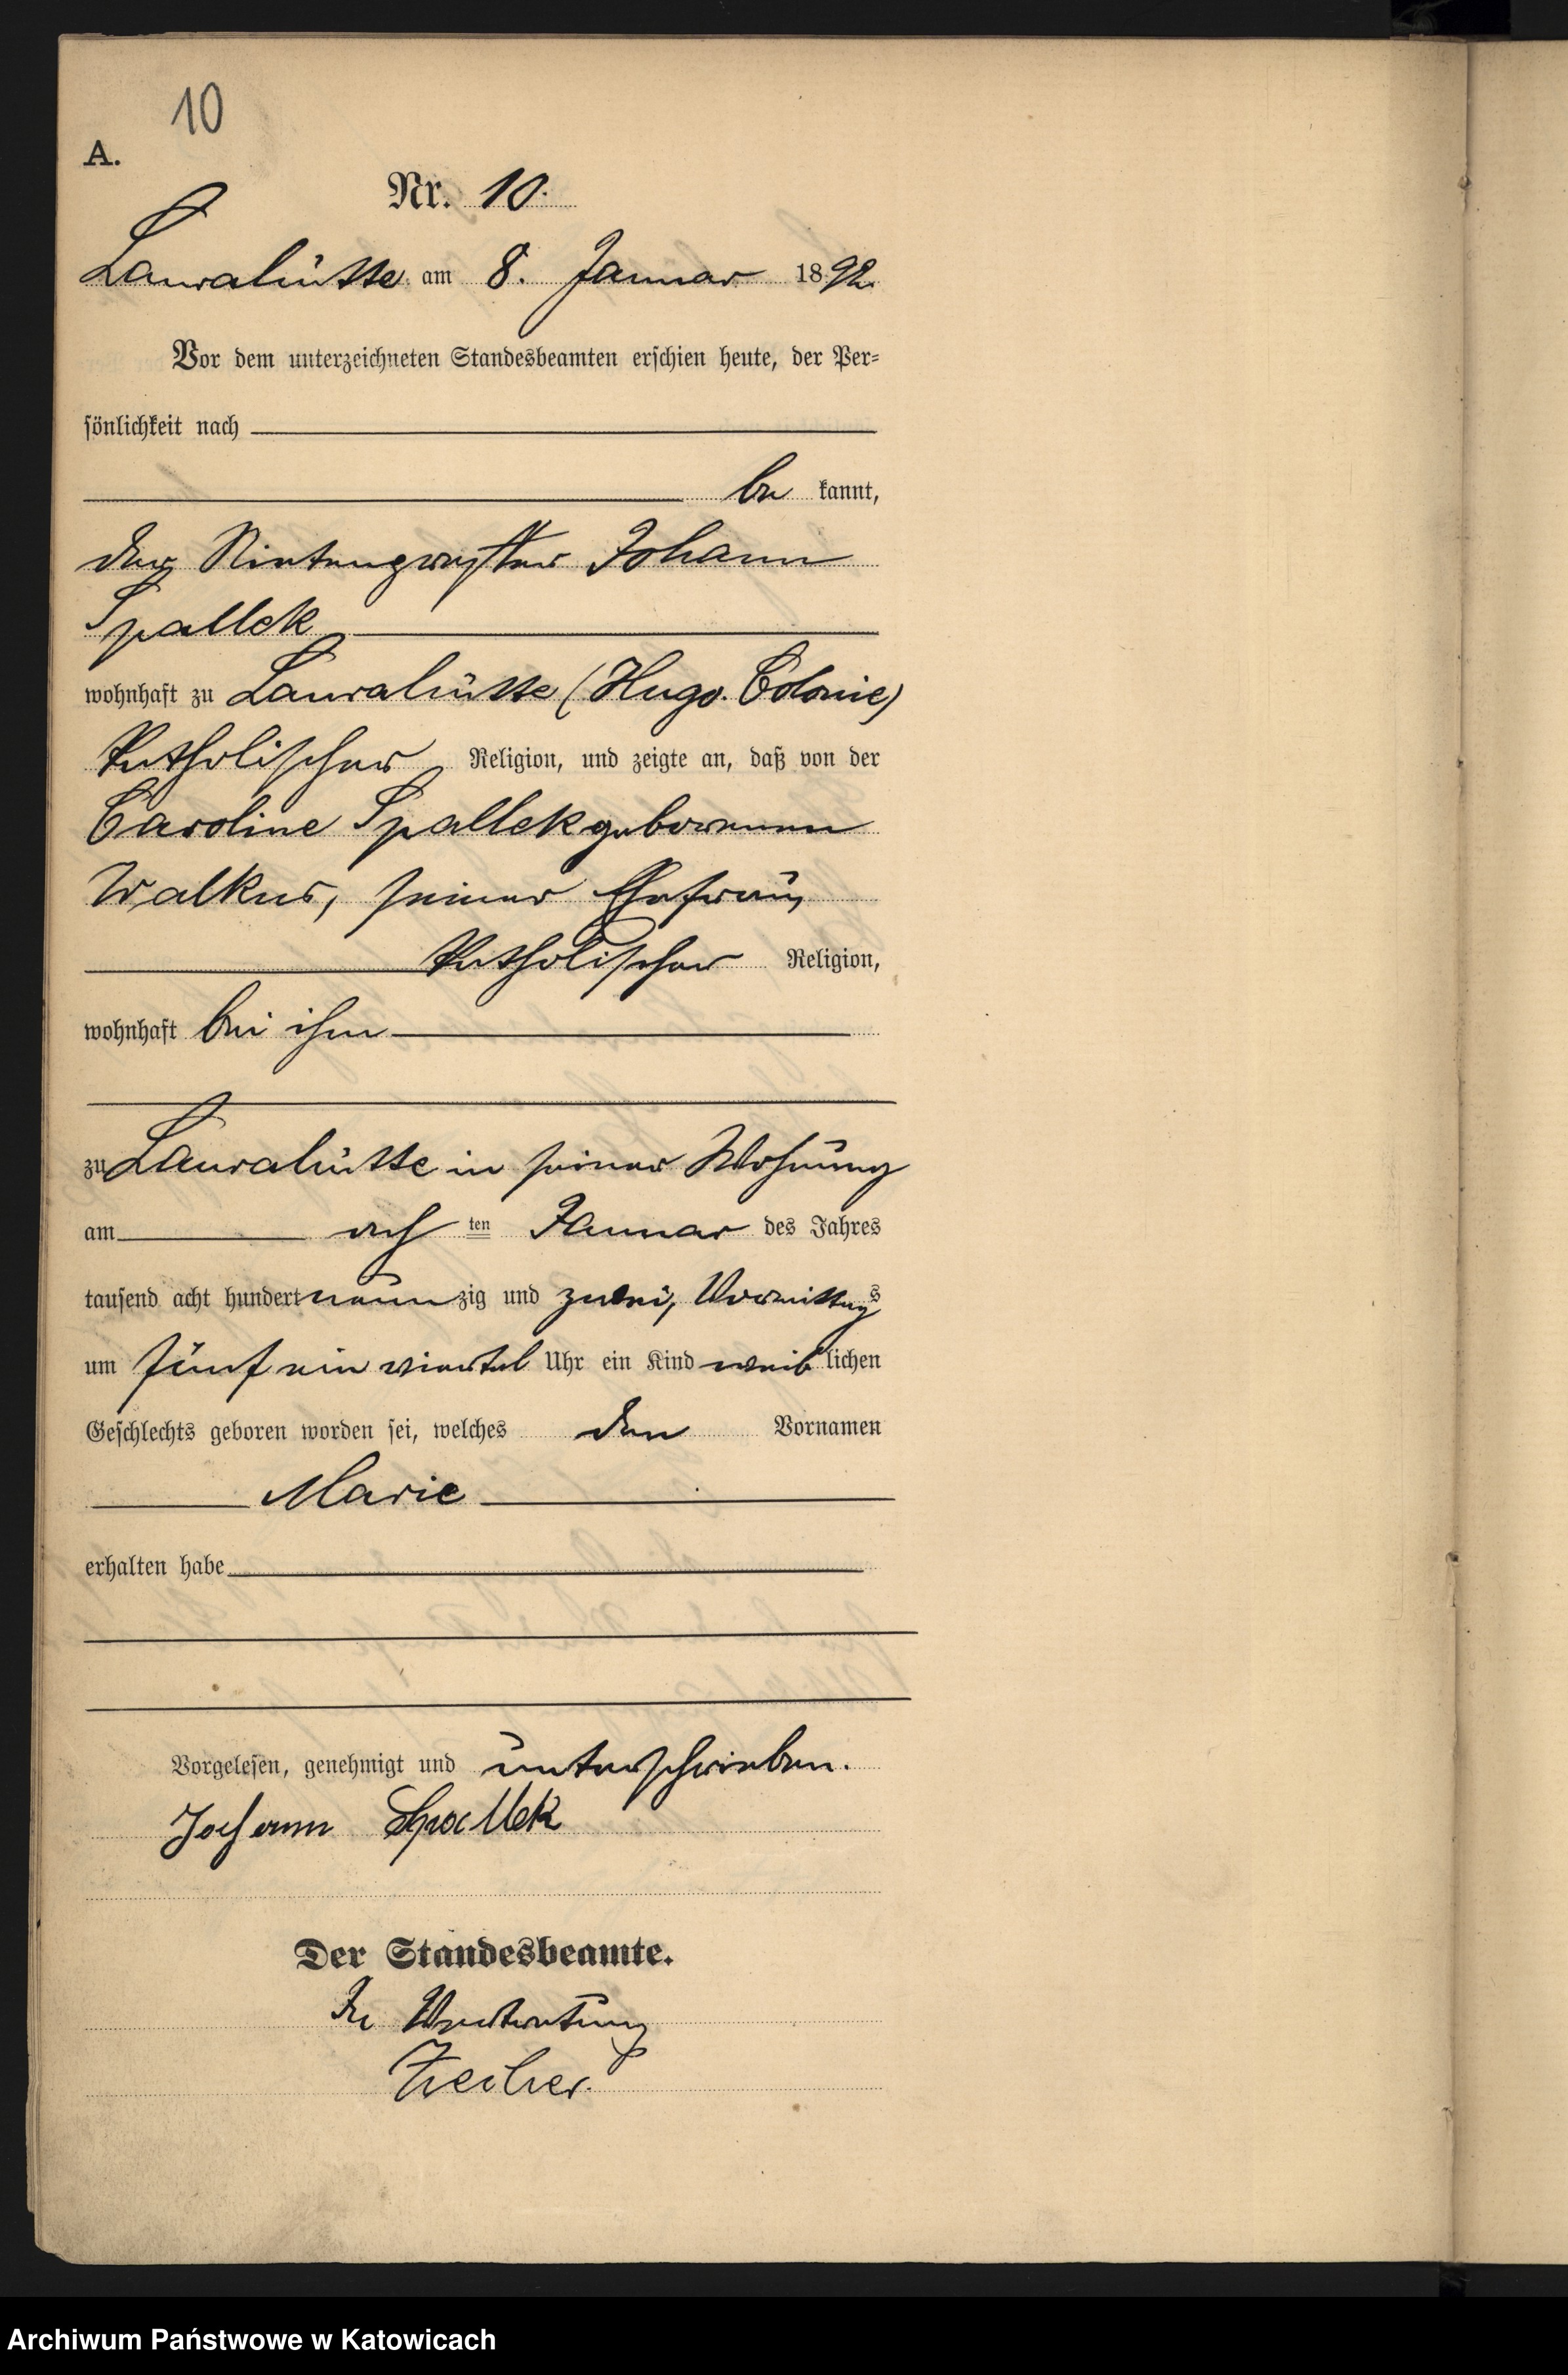 10
A.
Nr. 10.
Laurahütte am 8. Januar 1892.
Vor dem unterzeichneten Standesbeamten erschien heute, der Per=
sönlichkeit nach
be kannt,
der Johann
Spallek
wohnhaft zu Laurahütte (Hugo. Colonie)
katholischer Religion, und zeigte an, daß von der
Caroline Spallek geborenen
Walkus, seiner Ehefrau,
katholischer Religion,
wohnhaft bei ihm
zu Laurahütte in seiner Wohnung
am ach ten Januar des Jahres
tausend acht hundert neun zig und zwei, Vormittags
um fünf ein viertel Uhr ein Kind weib lichen
Geschlechts geboren worden sei, welches den Vornamen
Marie
erhalten habe
Vorgelesen, genehmigt und unterschrieben.
Johann Spallek
Der Standesbeamte.
In Vertretung
Archiwum Państwowe w Katowicach